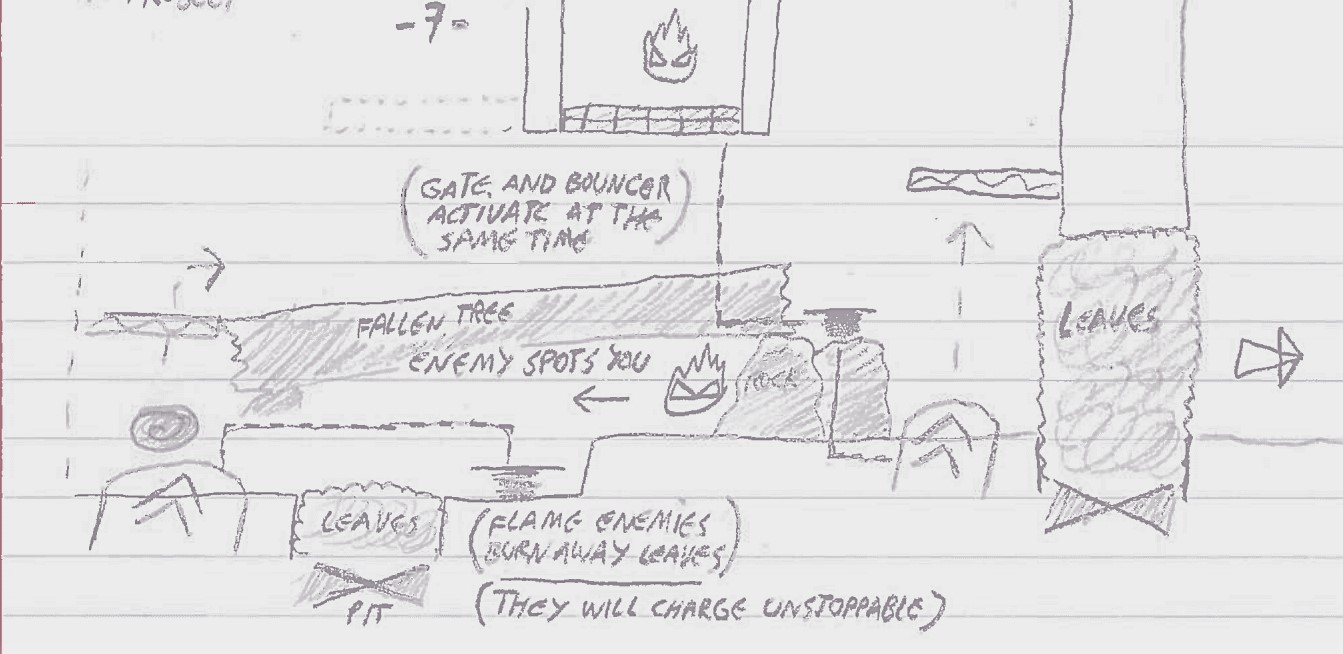 -7-
(GATE AND BOUNCER
ACTIVATE AT THE
SAME TIME)
FALLEN TREE
ENEMY SPOTS YOU
ROCK
LEAVES
LEAVES
(FLAME ENEMIES
BURN AWAY LEAVES)
(THEY WILL CHARGE UNSTOPPABLE)
PIT